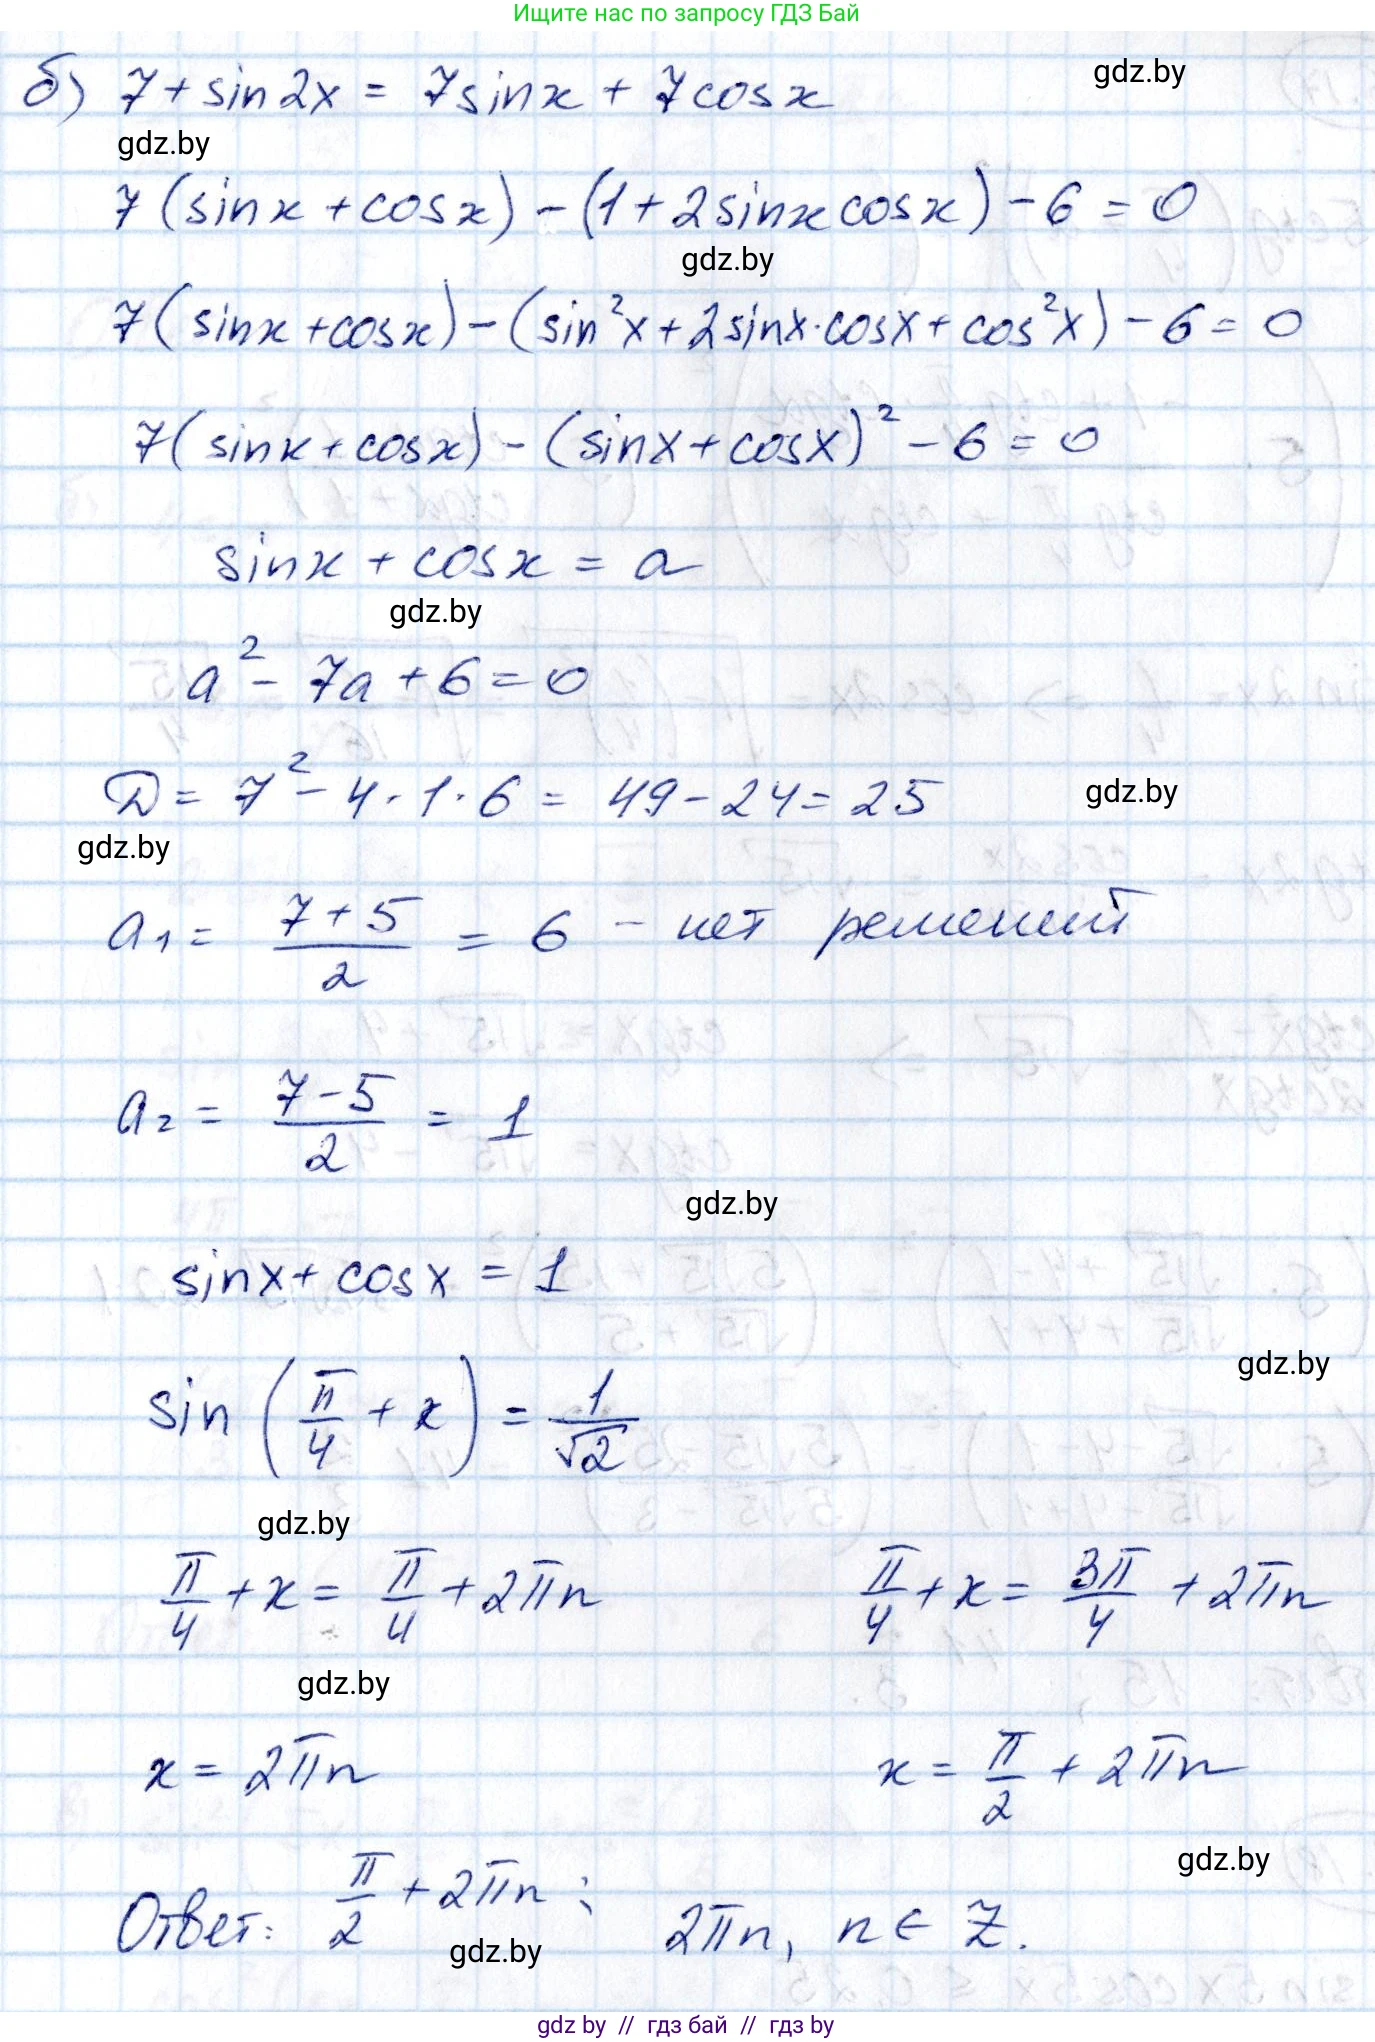 Ищите нас по запросу ГДЗ Бай
б) 7 + sin 2x = 7 sin x + 7 cos x
gdz.by
gdz.by
7 (sin x + cos x) - (1 + 2 sin x cos x) - 6 = 0
gdz.by
7 (sin x + cos x) - (sin² x + 2 sin x · cos x + cos² x) - 6 = 0
7 (sin x + cos x) - (sin x + cos x)² - 6 = 0
sin x + cos x = a
gdz.by
a² - 7a + 6 = 0
D = 7² - 4 · 1 · 6 = 49 - 24 = 25
gdz.by
gdz.by
a₁ = (7 + 5)/2 = 6 - нет решений
a₂ = (7 - 5)/2 = 1
gdz.by
sin x + cos x = 1
gdz.by
sin (π/4 + x) = 1/√2
gdz.by
π/4 + x = π/4 + 2πn    π/4 + x = 3π/4 + 2πn
gdz.by
x = 2πn    x = π/2 + 2πn
gdz.by
Ответ: π/2 + 2πn ; 2πn, n ∈ Z.
gdz.by
gdz by // гдз бай // гдз by